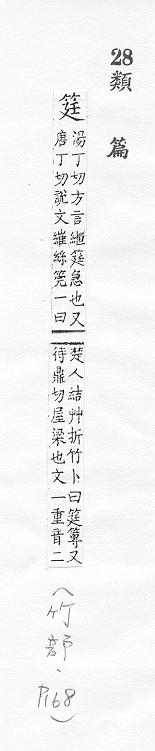 28
類篇
筳
湯丁切方言緪筳急也又
唐丁切說文維絲筦一曰
楚人結艸折竹卜曰筳篿又
待鼎切屋梁也文一重音二
(竹部、P168)